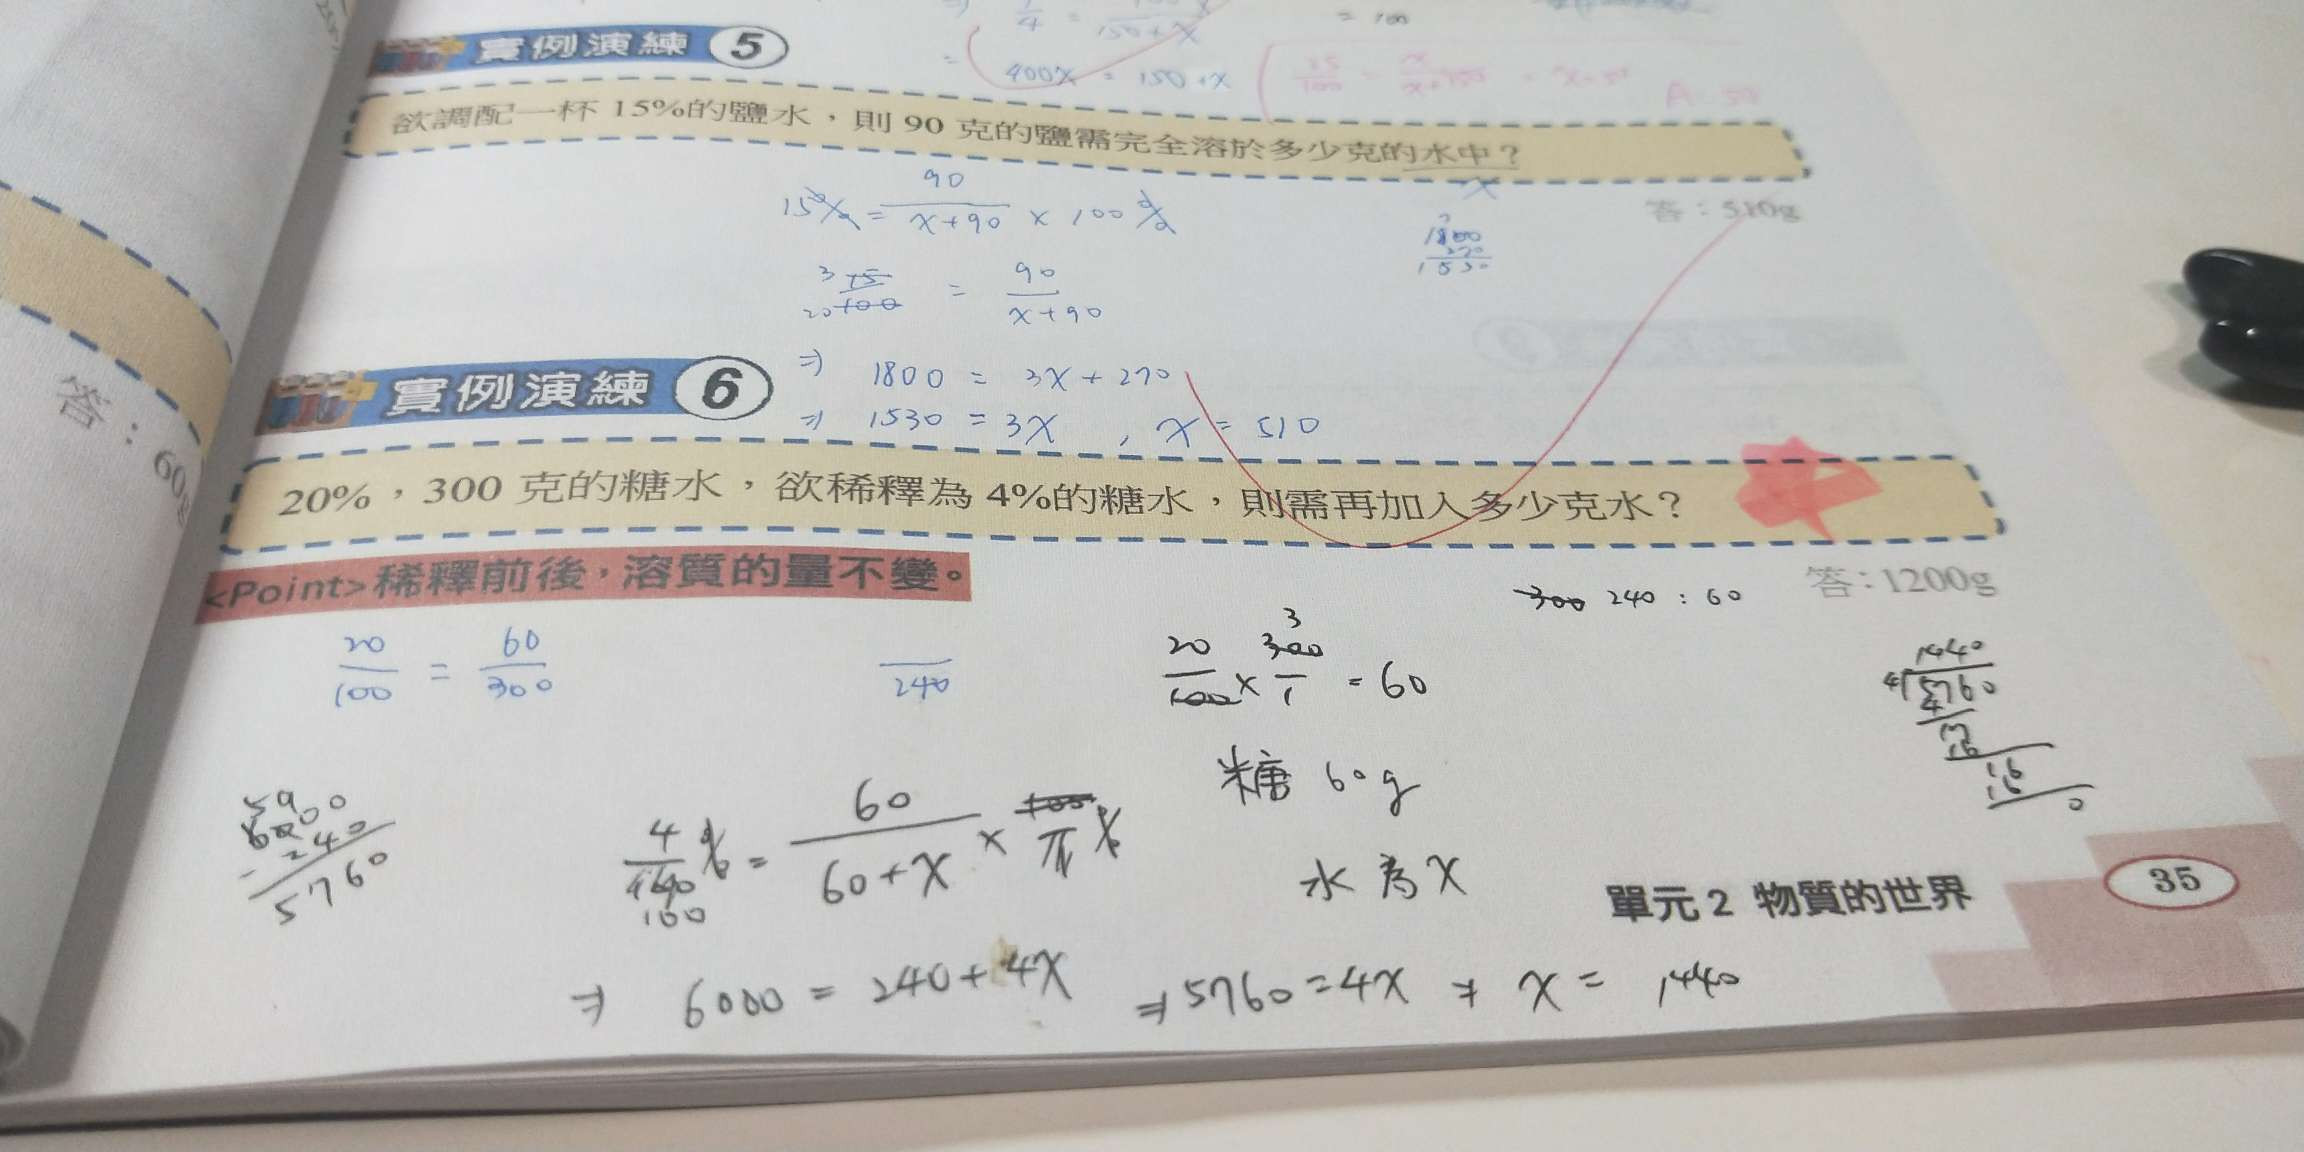 = 100
400x = 150 + x
實例演練 5
欲調配一杯 15%的鹽水，則 90 克的鹽需完全溶於多少克的水中？
x
答：510g
15% = 90 / x+90 × 100%
1800
270
1530
3 15 / 20 100 = 90 / x+90
⇒ 1800 = 3x + 270
⇒ 1530 = 3x , x = 510
答：60g
實例演練 6
20%，300 克的糖水，欲稀釋為 4%的糖水，則需再加入多少克水？
<Point>稀釋前後，溶質的量不變。
300 240 : 60
答：1200g
20/100 = 60/300
240
20/100 × 300/1 = 60
3
1440
4 5760
4
17
16
16
16
0
糖 60g
5900
6000
- 240
5760
4 / 100 % = 60 / 60+x ×
水為x
⇒ 6000 = 240 + 4x ⇒ 5760 = 4x ⇒ x = 1440
單元 2 物質的世界 35